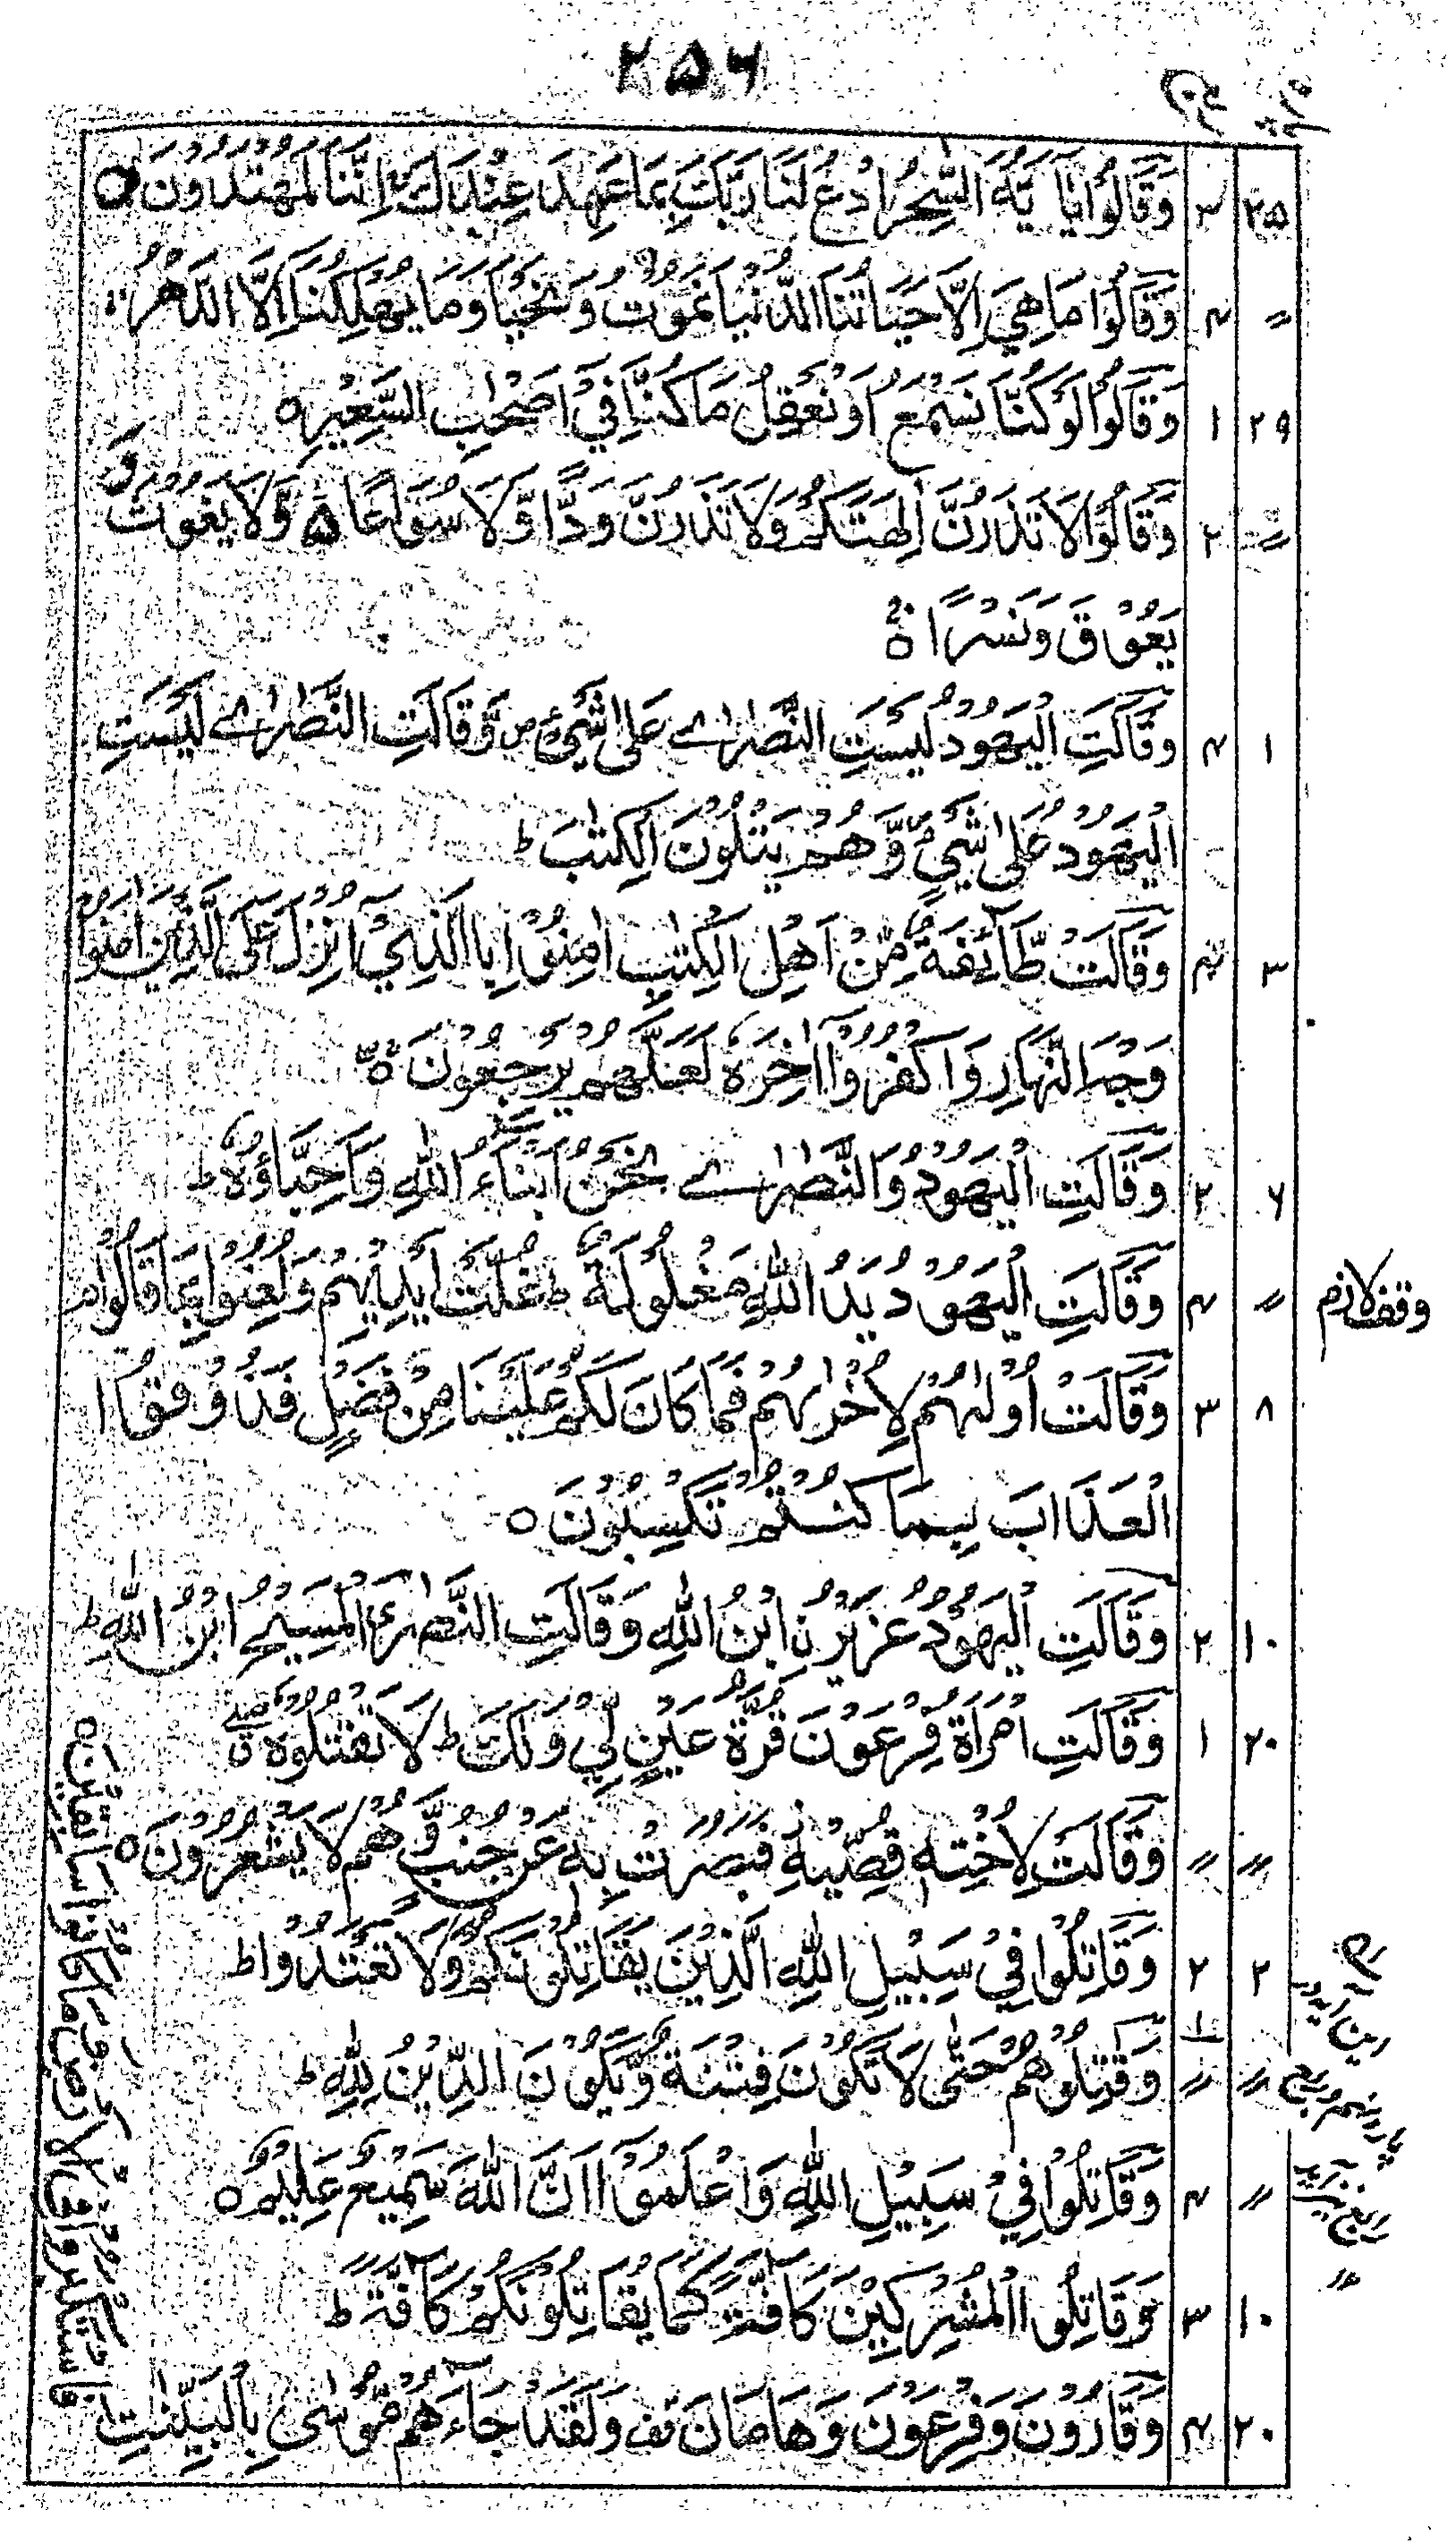 ۲۵۶
۲۵ ۳ وَقَالُوْا يَا يُّهَ السّٰحِرُ ادْعُ لَنَا رَبَّكَ بِمَا عَهِدَ عِنْدَكَ اِنَّنَا لَمُهْتَدُوْنَ ○
〃 ۴ وَقَالُوْا مَا هِيَ اِلَّا حَيَاتُنَا الدُّنْيَا نَمُوْتُ وَنَحْيَا وَمَا يُهْلِكُنَا اِلَّا الدَّهْرُ
۲۹ ۱ وَقَالُوْا لَوْ كُنَّا نَسْمَعُ اَوْ نَعْقِلُ مَا كُنَّا فِيْ اَصْحٰبِ السَّعِيْرِ ○
〃 ۲ وَقَالُوْا لَا تَذَرُنَّ اٰلِهَتَكُمْ وَلَا تَذَرُنَّ وَدًّا وَّلَا سُوَاعًا ۵ وَّلَا يَغُوْثَ وَ
يَعُوْقَ وَنَسْرًا ○
۱ ۴ وَقَالَتِ الْيَهُوْدُ لَيْسَتِ النَّصٰرٰے عَلٰى شَيْءٍ ص وَّقَالَتِ النَّصٰرٰے لَيْسَتِ
الْيَهُوْدُ عَلٰى شَيْءٍ وَّهُمْ يَتْلُوْنَ الْكِتٰبَ ط
۳ وَقَالَتْ طَّآئِفَةٌ مِّنْ اَهْلِ الْكِتٰبِ اٰمِنُوْا بِالَّذِيْٓ اُنْزِلَ عَلَى الَّذِيْنَ اٰمَنُوْا
وَجْهَ النَّهَارِ وَاكْفُرُوْٓا اٰخِرَهٗ لَعَلَّهُمْ يَرْجِعُوْنَ ○
۶ ۲ وَقَالَتِ الْيَهُوْدُ وَالنَّصٰرٰے نَحْنُ اَبْنَاءُ اللّٰهِ وَاَحِبَّاؤُهٗ ط
〃 ۴ وَقَالَتِ الْيَهُوْدُ يَدُ اللّٰهِ مَغْلُوْلَةٌ ط غُلَّتْ اَيْدِيْهِمْ وَلُعِنُوْا بِمَا قَالُوْا م وقف لازم
۸ ۳ وَقَالَتْ اُوْلٰىهُمْ لِاُخْرٰىهُمْ فَمَا كَانَ لَكُمْ عَلَيْنَا مِنْ فَضْلٍ فَذُوْقُوا
الْعَذَابَ بِمَا كُنْتُمْ تَكْسِبُوْنَ ○
۱۰ ۲ وَقَالَتِ الْيَهُوْدُ عُزَيْرُ نِ ابْنُ اللّٰهِ وَقَالَتِ النَّصٰرَى الْمَسِيْحُ ابْنُ اللّٰهِ ط
۲۰ ۱ وَقَالَتِ امْرَاَةُ فِرْعَوْنَ قُرَّةُ عَيْنٍ لِّيْ وَلَكَ ط لَا تَقْتُلُوْهُ
〃 〃 وَقَالَتْ لِاُخْتِهٖ قُصِّيْهِ فَبَصُرَتْ بِهٖ عَنْ جُنُبٍ وَّهُمْ لَا يَشْعُرُوْنَ ○
۲ ۲ وَقَاتِلُوْا فِيْ سَبِيْلِ اللّٰهِ الَّذِيْنَ يُقَاتِلُوْنَكُمْ وَلَا تَعْتَدُوْا ط
〃 〃 وَقٰتِلُوْهُمْ حَتّٰى لَا تَكُوْنَ فِتْنَةٌ وَّيَكُوْنَ الدِّيْنُ لِلّٰهِ ط
〃 ۴ وَقَاتِلُوْا فِيْ سَبِيْلِ اللّٰهِ وَاعْلَمُوْا اَنَّ اللّٰهَ سَمِيْعٌ عَلِيْمٌ ○
۱۰ ۳ وَقَاتِلُوا الْمُشْرِكِيْنَ كَافَّةً كَمَا يُقَاتِلُوْنَكُمْ كَافَّةً ط
۲۰ ۴ وَقَارُوْنَ وَفِرْعَوْنَ وَهَامَانَ قف وَلَقَدْ جَاءَهُمْ مُّوْسٰى بِالْبَيِّنٰتِ
فَاسْتَكْبَرُوْا فِى الْاَرْضِ وَمَا كَانُوْا سٰبِقِيْنَ ○